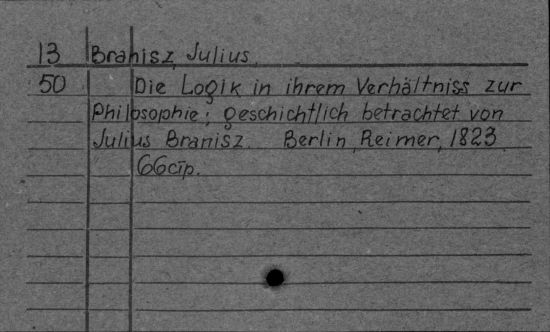 13 Branisz, Julius.
50 Die Logik in ihrem Verhältniss zur
Philosophie; geschichtlich betrachtet von
Julius Branisz. Berlin, Reimer, 1823.
66стр.